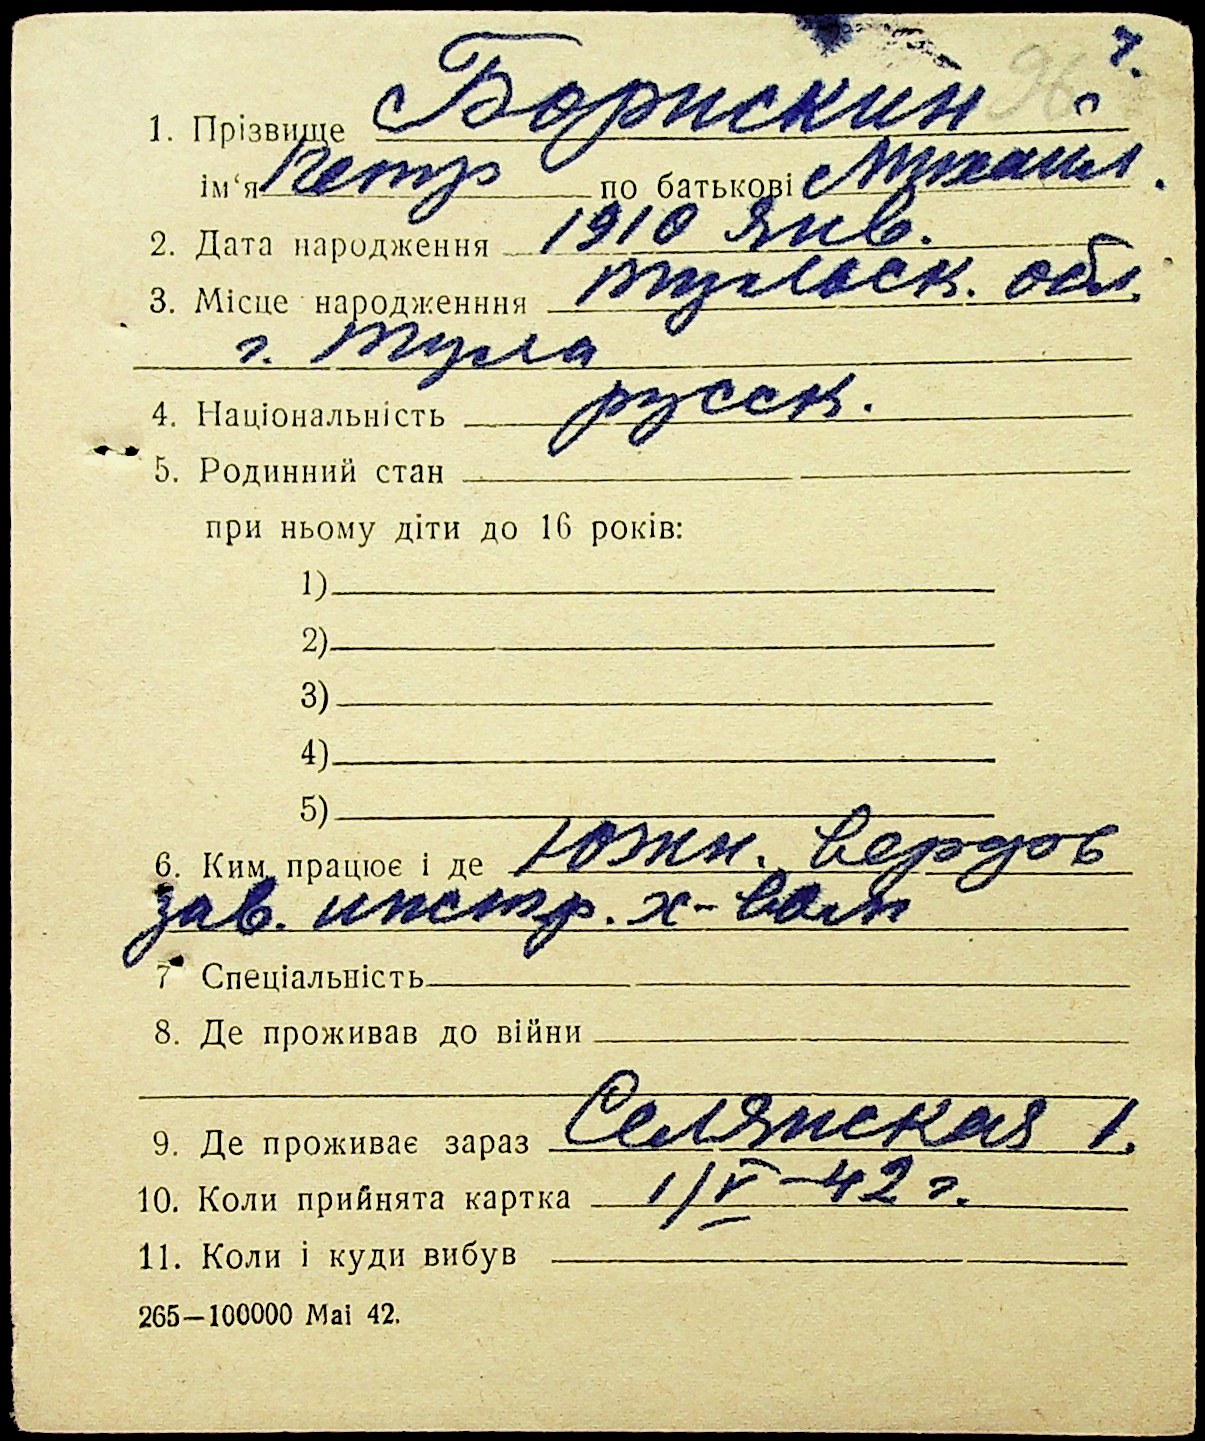 ч.
1. Прізвище Борискин
ім‘я Петр по батькові Михаил.
2. Дата народження 1910 янв.
3. Місце народженння тульск. обл.
г. Тула
4. Національність русск.
5. Родинний стан
при ньому діти до 16 років:
1)
2)
3)
4)
5)
6. Ким працює і де Южн. вердов
зав. инстр. х-вом
7 Спеціальність
8. Де проживав до війни
9. Де проживає зараз Селянская 1.
10. Коли прийнята картка 1/V-42 г.
11. Коли і куди вибув
265—100000 Маі 42.